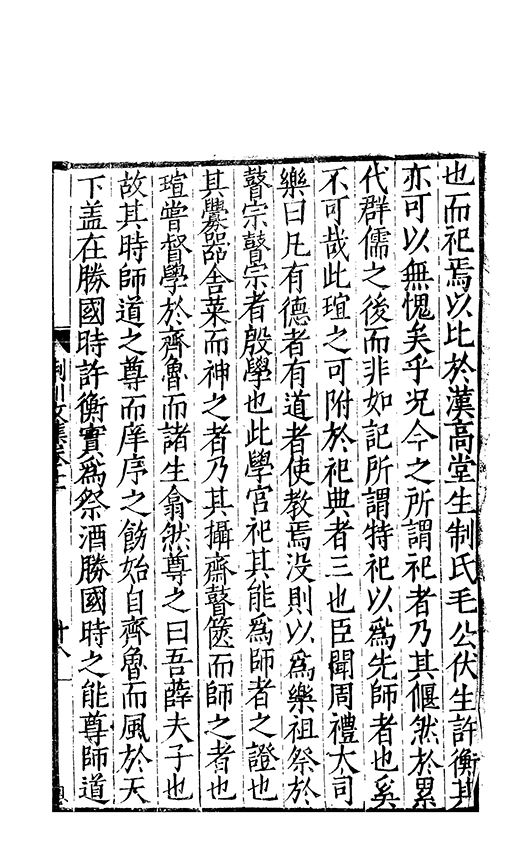 也而祀焉以比於漢高堂生制氏毛公伏生許衡其
亦可以無愧矣乎况今之所謂祀者乃其偃然於累
代群儒之後而非如記所謂特祀以爲先師者也奚
不可哉此瑄之可附於祀典者三也臣聞周禮大司
樂曰凡有德者有道者使教焉没則以爲樂祖祭於
瞽宗瞽宗者殷學也此學宮祀其能爲師者之證也
其釁器舍菜而神之者乃其攝齋瞽篋而師之者也
瑄嘗督學於齊魯而諸生翕然尊之曰吾薛夫子也
故其時師道之尊而庠序之飭始自齊魯而風於天
下盖在勝國時許衡實爲祭酒勝國時之能尊師道